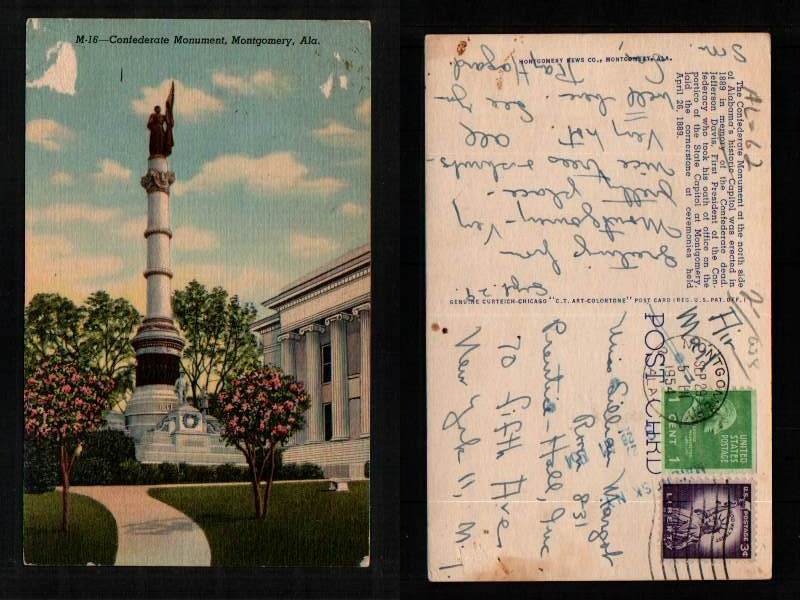 M-16—Confederate Monument, Montgomery, Ala.
MONTGOMERY NEWS CO., MONTGOMERY, ALA.
The Confederate Monument at the north side
of Alabama's historic Capitol was erected in
1889 in memory of the Confederate dead.
Jefferson Davis, First President of the Con-
federacy who took his oath of office on the
portico of the State Capitol at Montgomery,
laid the cornerstone at ceremonies held
April 26, 1889.
Sept. 29
Greetings from
Montgomery - Very
pretty place -
nice trees & shrubs
Very hot. All
well here. See you
Ray Hagard
GENUINE CURTEICH-CHICAGO "C.T. ART-COLORTONE" POST CARD (REG. U.S. PAT. OFF.)
POST CARD
MONTGOMERY
SEP 29
1954
ALA.
UNITED
STATES
POSTAGE
1 CENT 1
U.S. POSTAGE
LIBERTY
3¢
Miss Lillian Margot
Room 831
Prentice-Hall, Inc
70 Fifth Ave
New York 11, N.Y.
AL-62